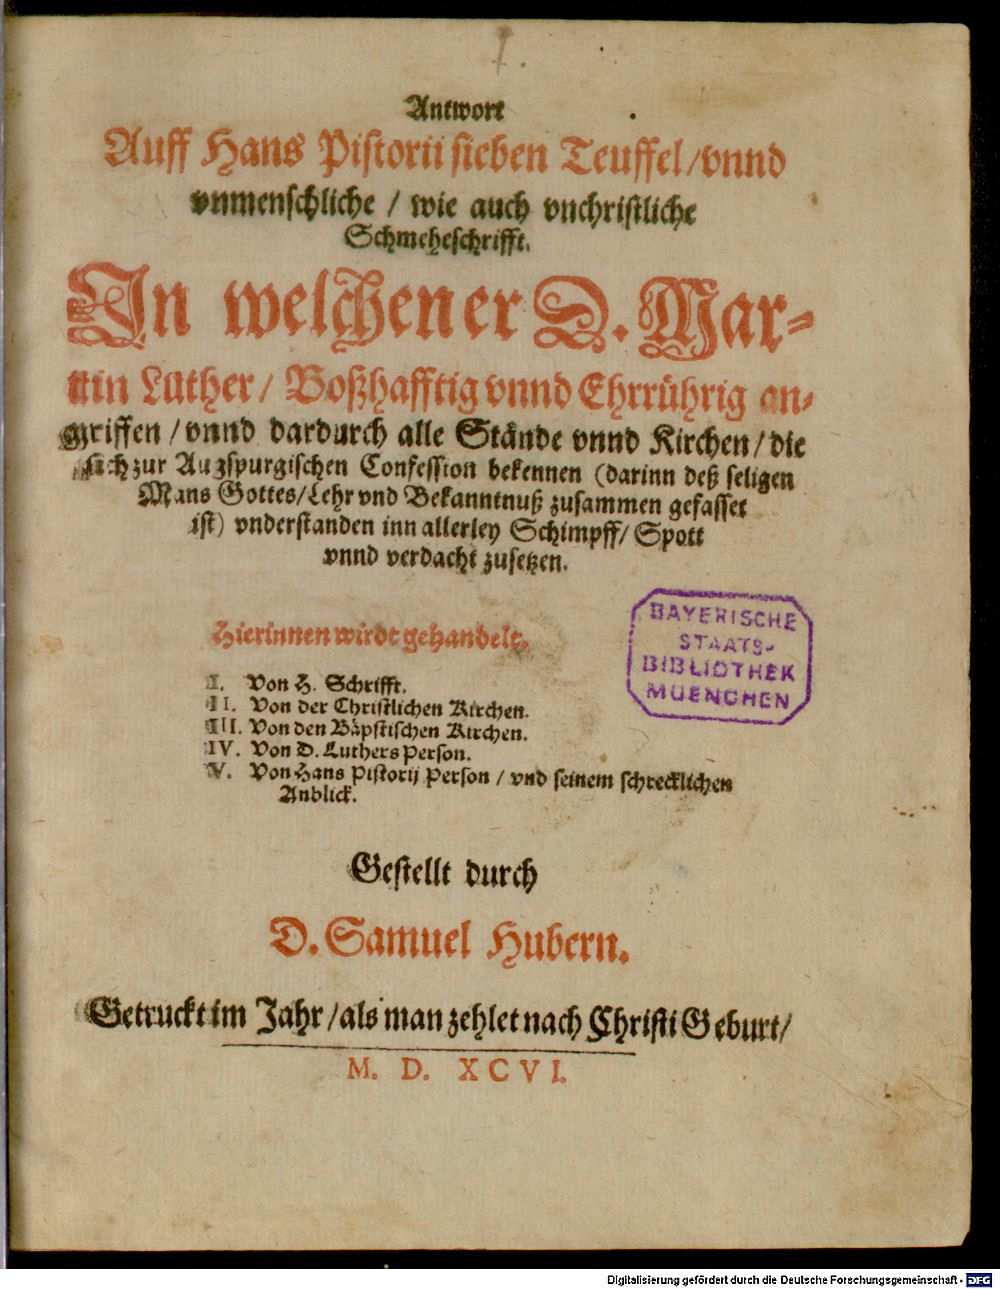 1.
Antwort
Auff Hans Pistorii sieben Teuffel/ vnnd
vnmenschliche / wie auch vnchristliche
Schmeheschrifft.
In welchen er D. Mar-
tin Luther/ Boßhafftig vnnd Ehrrührig an-
griffen / vnnd dardurch alle Stände vnnd Kirchen / die
sich zur Augspurgischen Confession bekennen (darinn deß seligen
Mans Gottes/ Lehr vnd Bekanntnuß zusammen gefasset
ist) vnderstanden inn allerley Schimpff/ Spott
vnnd verdacht zusetzen.
Hierinnen wirdt gehandelt.
I. Von H. Schrifft.
II. Von der Christlichen Kirchen.
III. Von den Bäpstischen Kirchen.
IV. Von D. Luthers Person.
V. Von Hans Pistorij Person / vnd seinem schrecklichen
Anblick.
BAYERISCHE
STAATS-
BIBLIOTHEK
MUENCHEN
Gestellt durch
D. Samuel Hubern.
Getruckt im Jahr / als man zehlet nach Christi Geburt /
M. D. XCVI.
Digitalisierung gefördert durch die Deutsche Forschungsgemeinschaft - DFG